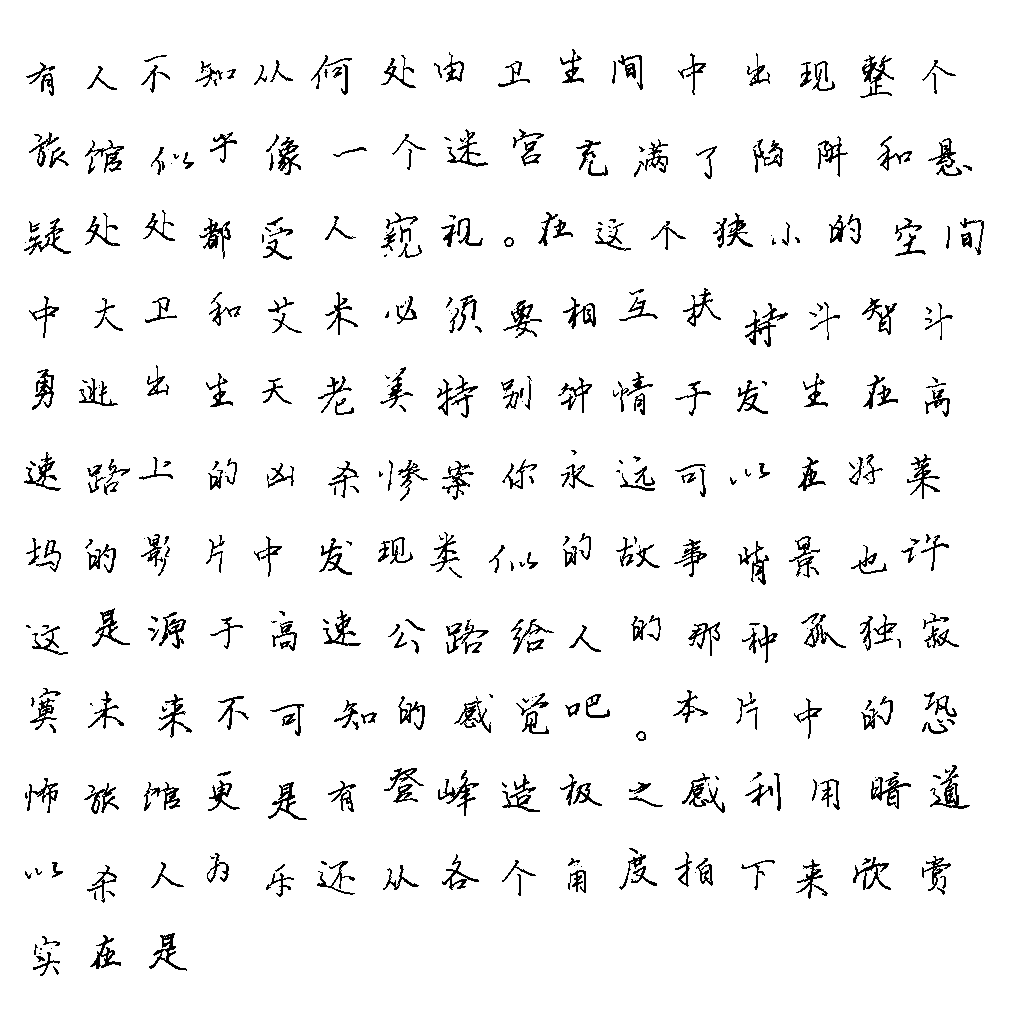 有人不知从何处由卫生间中出现整个
旅馆似乎像一个迷宫充满了陷阱和悬
疑处处都受人窥视。在这个狭小的空间
中大卫和艾米必须要相互扶持斗智斗
勇逃出生天老美特别钟情于发生在高
速路上的凶杀惨案你永远可以在好莱
坞的影片中发现类似的故事背景也许
这是源于高速公路给人的那种孤独寂
寞未来不可知的感觉吧。本片中的恐
怖旅馆更是有登峰造极之感利用暗道
以杀人为乐还从各个角度拍下来欣赏
实在是